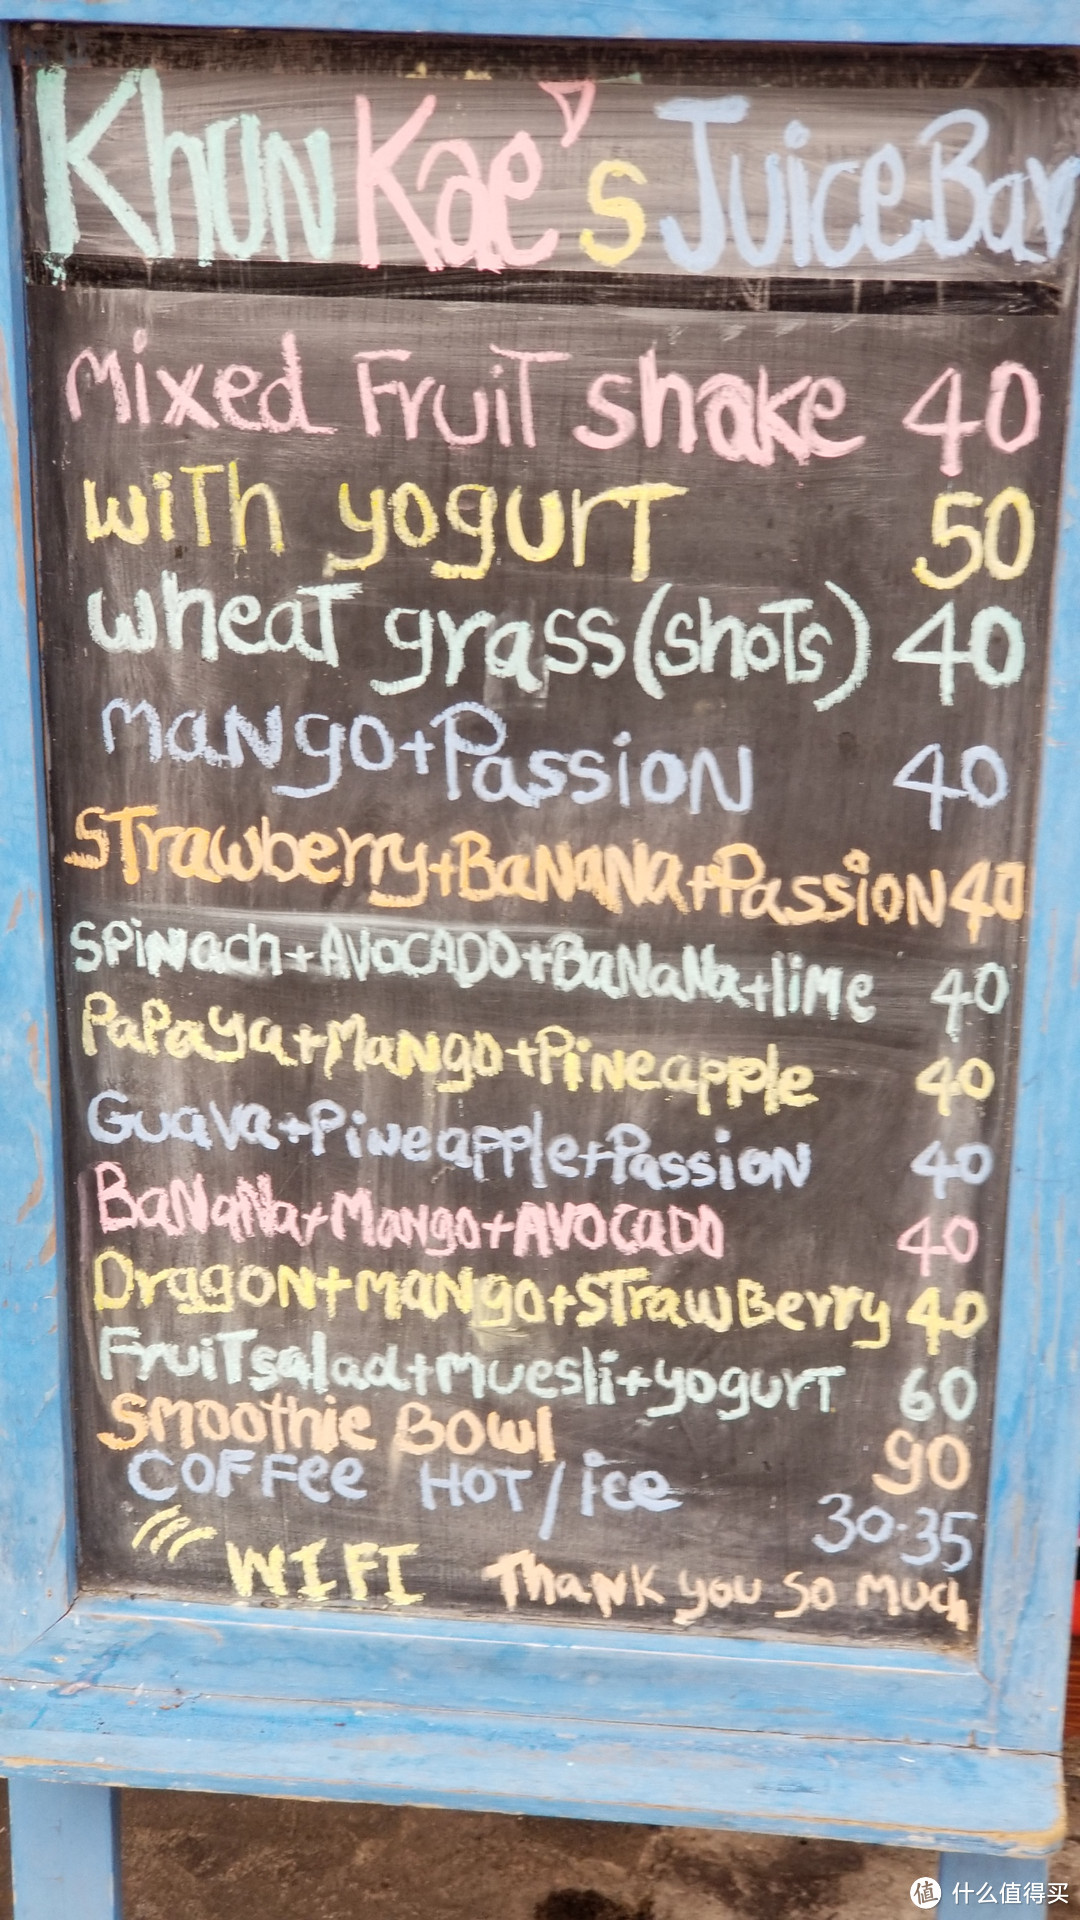 Khun Kae's Juice Bar
Mixed Fruit shake 40
with yogurt 50
wheat grass (shots) 40
Mango+Passion 40
Strawberry+Banana+Passion 40
Spinach+Avocado+Banana+lime 40
Papaya+Mango+Pineapple 40
Guava+Pineapple+Passion 40
Banana+Mango+Avocado 40
Dragon+mango+Strawberry 40
Fruit salad+muesli+yogurt 60
Smoothie Bowl 90
COFFee HOT/ice 30-35
WIFI Thank you so much
值 什么值得买